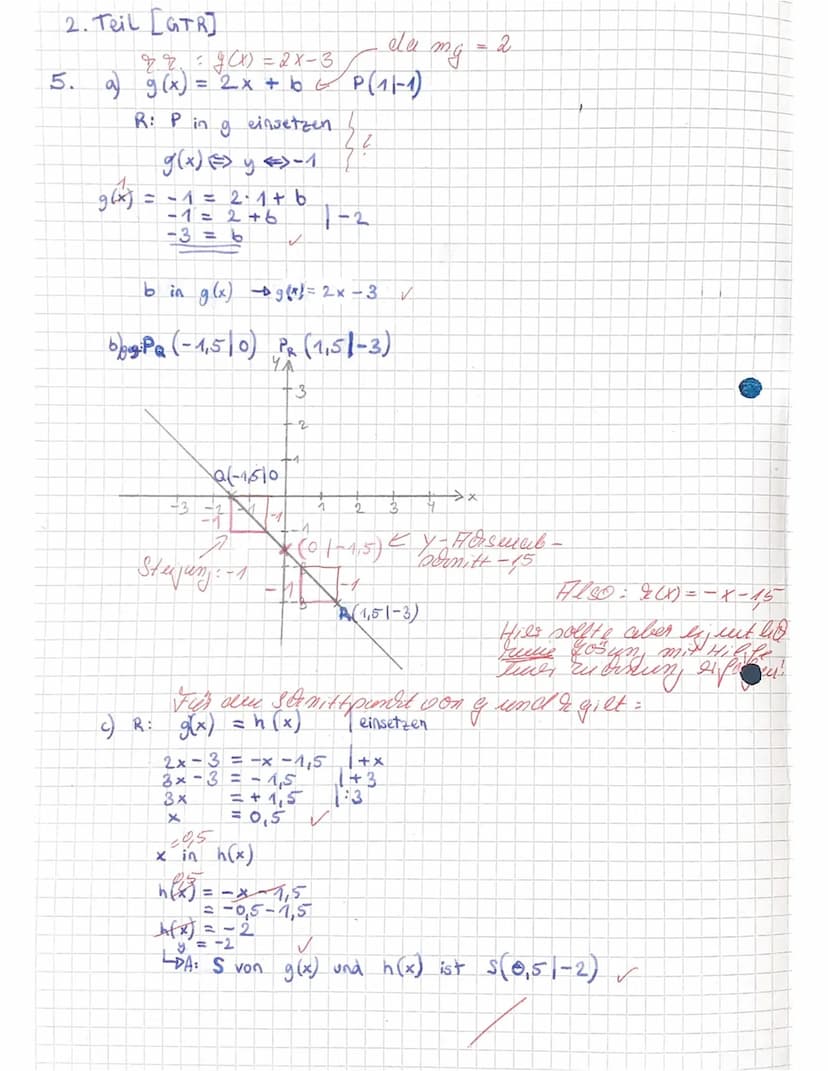 2. Teil [GTR]
da mg = 2
zz. : g(x) = 2x - 3
5. a) g(x) = 2x + b P(1|-1)
R: P in g einsetzen
?
g(x) ⇔ y ⇔ -1
1
g(x) = -1 = 2·1 + b
-1 = 2 + b | -2
-3 = b ✓
b in g(x) → g(x) = 2x - 3 ✓
b) geg: PQ (-1,5|0) PR (1,5|-3)
y
3
2
1
Q(-1,5|0
-3 -2 -1 1 2 3 4 x
-1 -1 -1
x (0|-1,5) ← y-Achsenab-
schnitt -1,5
Steigung: -1
-1 -1
-3
R(1,5|-3)
Also: h(x) = -x - 1,5
Hier sollte aber eigentlich
keine Lösung mit Hilfe
einer Zeichnung erfolgen!
Für den Schnittpunkt von g und h gilt:
c) R: g(x) = h(x) | einsetzen
2x - 3 = -x - 1,5 | +x
3x - 3 = -1,5 | +3
3x = +1,5 | :3
x = 0,5 ✓
= 0,5
x in h(x)
0,5
h(x) = -x - 1,5
= -0,5 - 1,5
h(x) = -2
y = -2 ✓
↳ A: S von g(x) und h(x) ist S(0,5|-2) ✓